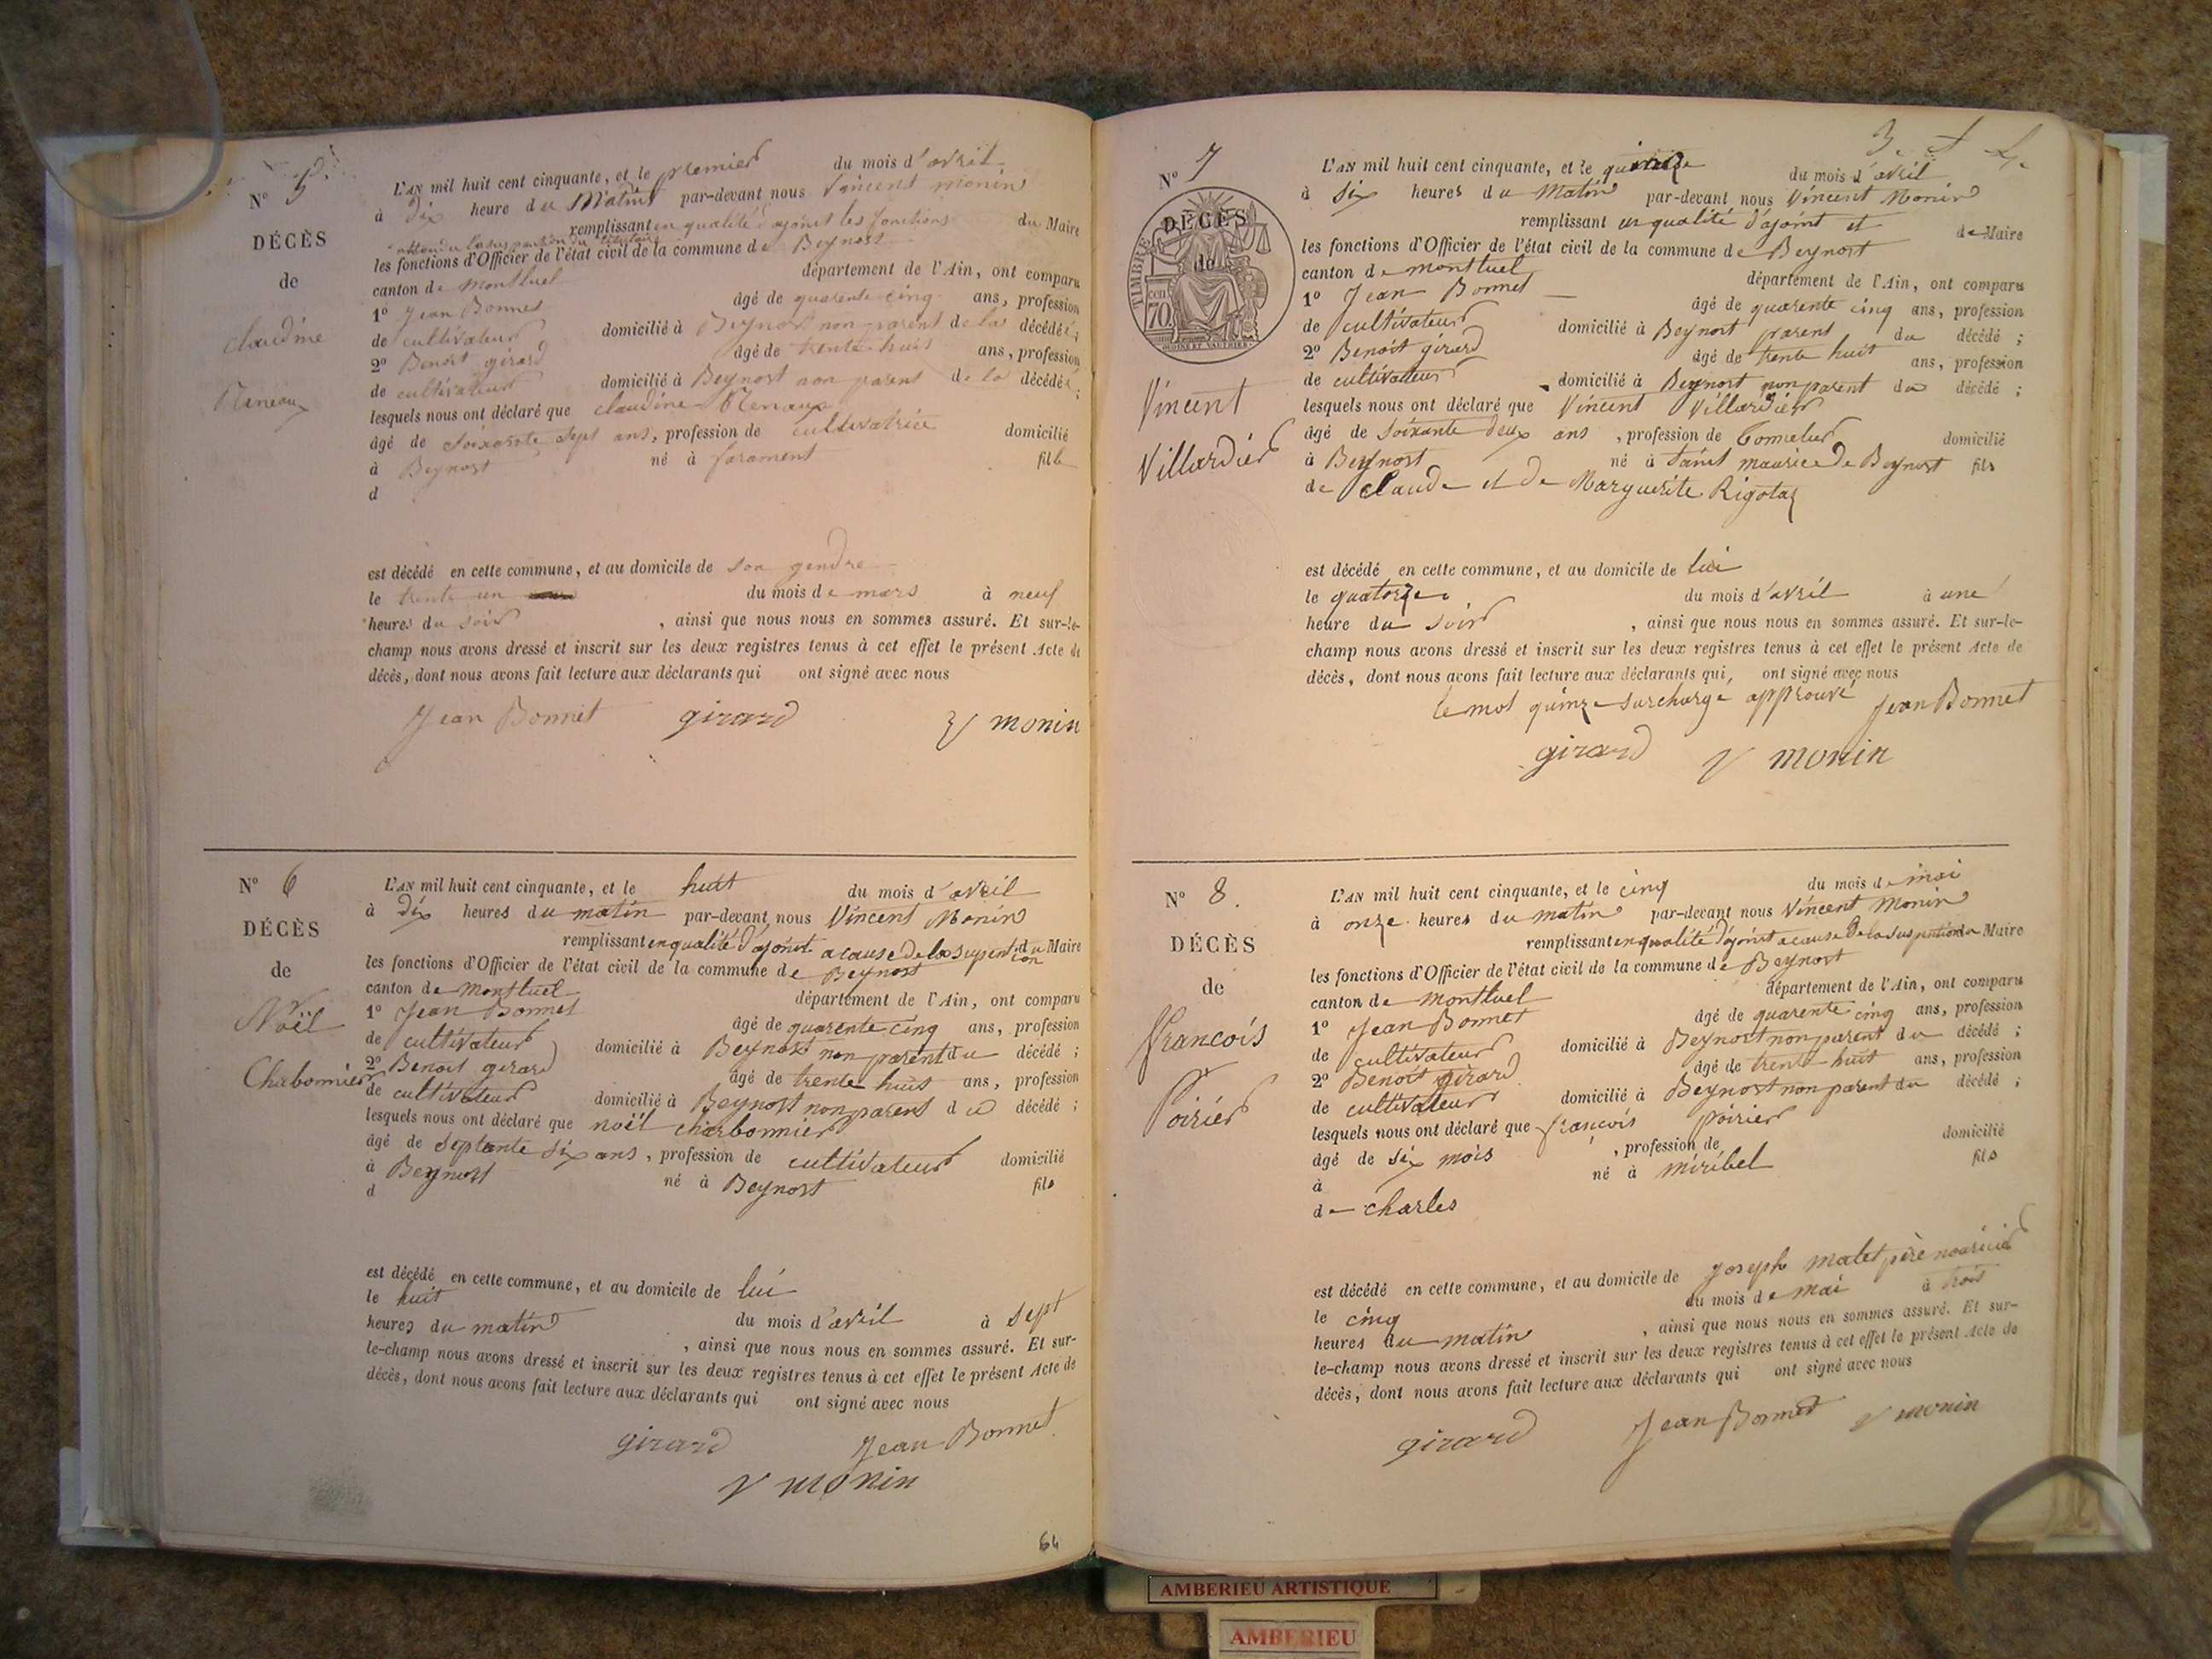 N° 5
DÉCÈS
de
claudine
Reneaux
L'AN mil huit cent cinquante, et le premier du mois d'avril
à dix heure du Matin par-devant nous Vincent Monin
remplissant en qualité d'ajoint les fonctions du Maire
attendu la suspension du titulaire
les fonctions d'Officier de l'état civil de la commune de Beynost
canton de Montluel département de l'Ain, ont comparu
1° Jean Bonnet âgé de quarente cinq ans, profession
de cultivateur domicilié à Beynost non parent de la décédée;
2° Benoit girard âgé de trente huit ans, profession
de cultivateur domicilié à Beynost non parent de la décédée;
lesquels nous ont déclaré que claudine Renaux
âgé de soixante sept ans, profession de cultivatrice domicilié
à Beynost né à faramant fille
d
est décédé en cette commune, et au domicile de son gendre
le trente un du mois de mars à neuf
heures du soir, ainsi que nous nous en sommes assuré. Et sur-le-
champ nous avons dressé et inscrit sur les deux registres tenus à cet effet le présent Acte de
décès, dont nous avons fait lecture aux déclarants qui ont signé avec nous
Jean Bonnet girard V monin
N° 6
DÉCÈS
de
Noël
Charbonnier
L'AN mil huit cent cinquante, et le huit du mois d'avril
à dix heures du matin par-devant nous Vincent Monin
remplissant en qualité d'ajoint a cause de la suspention du Maire
les fonctions d'Officier de l'état civil de la commune de Beynost
canton de Montluel département de l'Ain, ont comparu
1° Jean Bonnet âgé de quarente cinq ans, profession
de cultivateur domicilié à Beynost non parent du décédé;
2° Benoit girard âgé de trente huit ans, profession
de cultivateur domicilié à Beynost non parent du décédé;
lesquels nous ont déclaré que noël charbonnier
âgé de septante six ans, profession de cultivateur domicilié
à Beynost né à Beynost fils
d
est décédé en cette commune, et au domicile de lui
le huit du mois d'avril à sept
heures du matin, ainsi que nous nous en sommes assuré. Et sur-
le-champ nous avons dressé et inscrit sur les deux registres tenus à cet effet le présent Acte de
décès, dont nous avons fait lecture aux déclarants qui ont signé avec nous
girard Jean Bonnet
V monin
64
N° 7
DÉCÈS
de
TIMBRE
70 cen
Vincent
Villardier
L'AN mil huit cent cinquante, et le quinze du mois d'avril
à six heures du Matin par-devant nous Vincent Monin
remplissant en qualité d'ajoint et de Maire
les fonctions d'Officier de l'état civil de la commune de Beynost
canton de montluel département de l'Ain, ont comparu
1° Jean Bonnet âgé de quarente cinq ans, profession
de cultivateur domicilié à Beynost parent du décédé;
2° Benoit girard âgé de trente huit ans, profession
de cultivateur domicilié à Beynost non parent du décédé;
lesquels nous ont déclaré que Vincent Villardier
âgé de soixante deux ans, profession de Tonnelier domicilié
à Beynost né à Saint maurice De Beynost fils
de Claude et de Marguerite Rigotaz
est décédé en cette commune, et au domicile de lui
le quatorze du mois d'avril à une
heure du soir, ainsi que nous nous en sommes assuré. Et sur-le-
champ nous avons dressé et inscrit sur les deux registres tenus à cet effet le présent Acte de
décès, dont nous avons fait lecture aux déclarants qui, ont signé avec nous
le mot quinze surcharge approuvé Jean Bonnet
girard V monin
N° 8.
DÉCÈS
de
François
Poirier
L'AN mil huit cent cinquante, et le cinq du mois de mai
à onze heures du matin par-devant nous Vincent Monin
remplissant en qualité d'ajoint a cause de la suspention du Maire
les fonctions d'Officier de l'état civil de la commune de Beynost
canton de montluel département de l'Ain, ont comparu
1° Jean Bonnet âgé de quarente cinq ans, profession
de cultivateur domicilié à Beynost non parent du décédé;
2° Benoit girard âgé de trente huit ans, profession
de cultivateur domicilié à Beynost non parent du décédé;
lesquels nous ont déclaré que françois poirier
âgé de six mois, profession de domicilié
à né à miribel fils
de charles
est décédé en cette commune, et au domicile de Joseph malet père nouricier
le cinq du mois de mai à trois
heures du matin, ainsi que nous nous en sommes assuré. Et sur-
le-champ nous avons dressé et inscrit sur les deux registres tenus à cet effet le présent Acte de
décès, dont nous avons fait lecture aux déclarants qui ont signé avec nous
girard Jean Bonnet V monin
AMBERIEU ARTISTIQUE
AMBERIEU